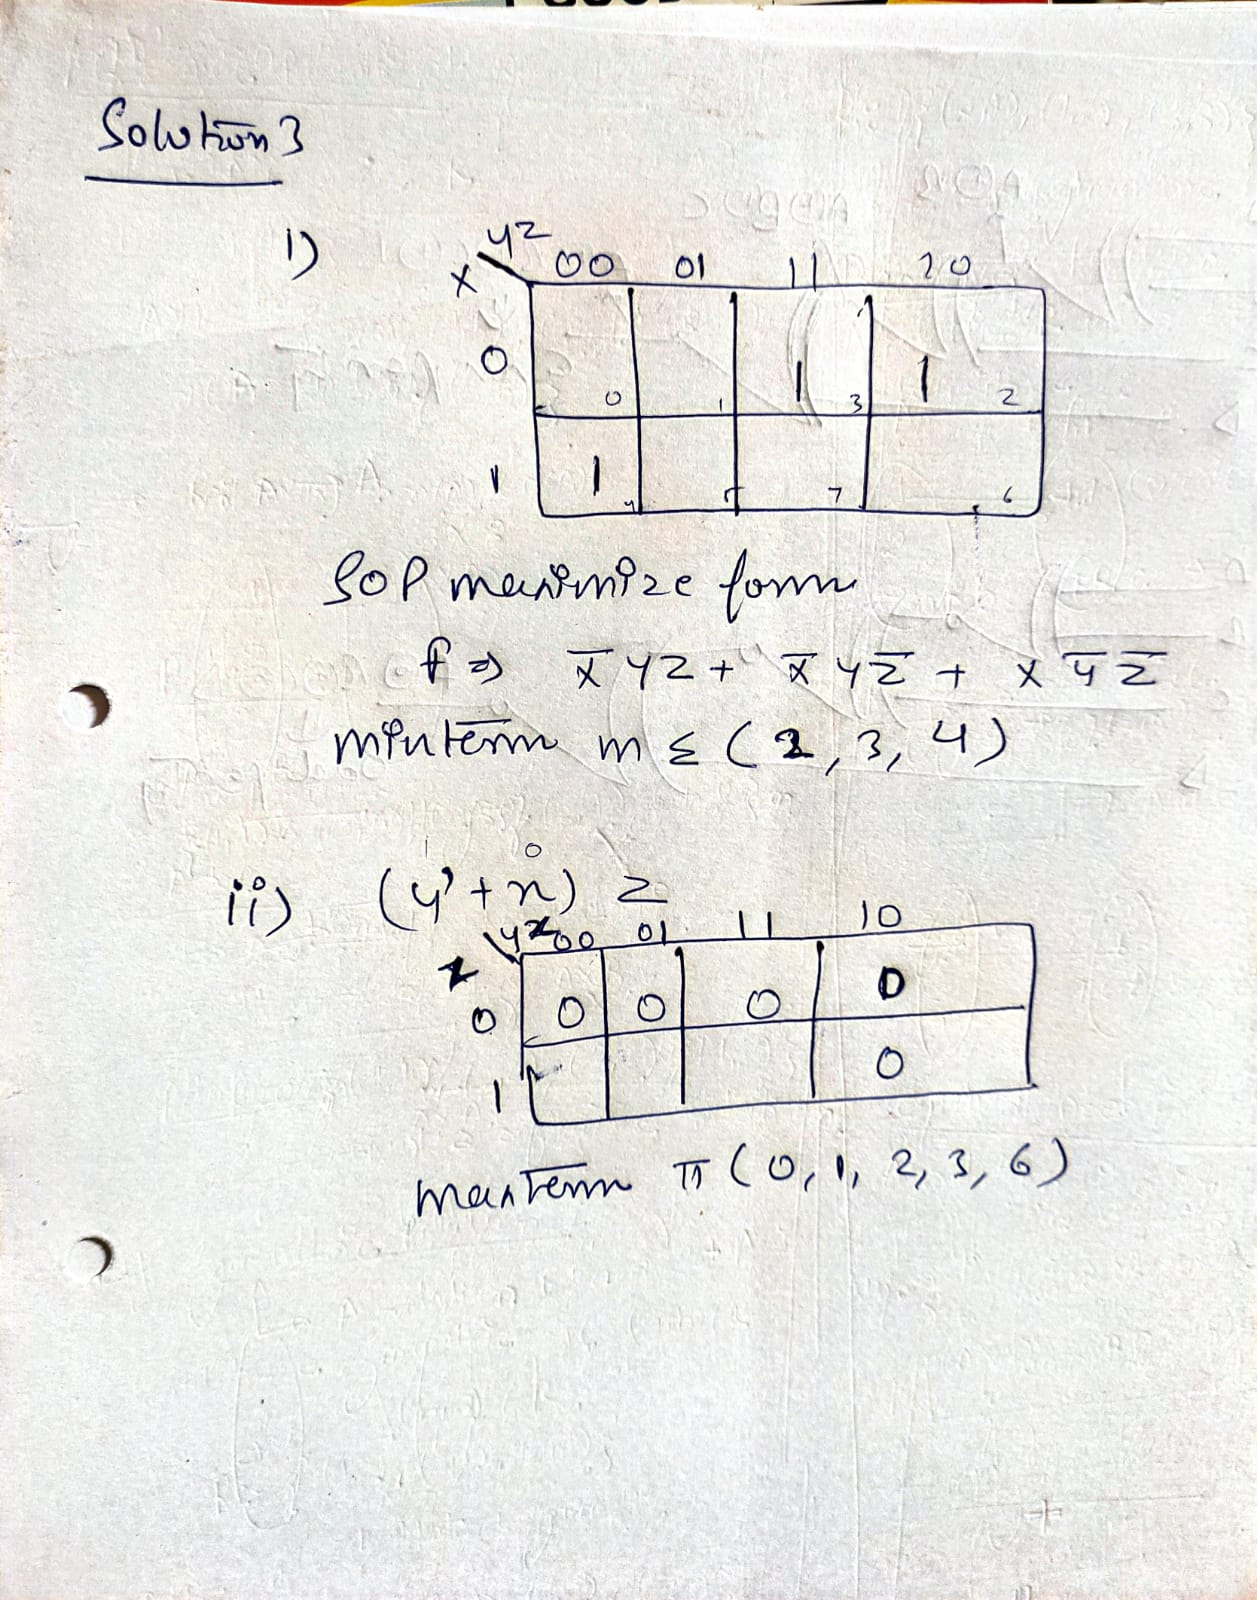 Solution 3
1)
yz
x
00 01 11 10
0
0 1 1 3 1 2
1
1 4 5 7 6
SOP maximize form
f ⇒ x̅yz + x̅yz̅ + xy̅z̅
minterm m Σ (2, 3, 4)
ii) (y' + x) z
1 0
yx
z
00 01 11 10
0
0 0 0 0
1
0
maxterm π (0, 1, 2, 3, 6)